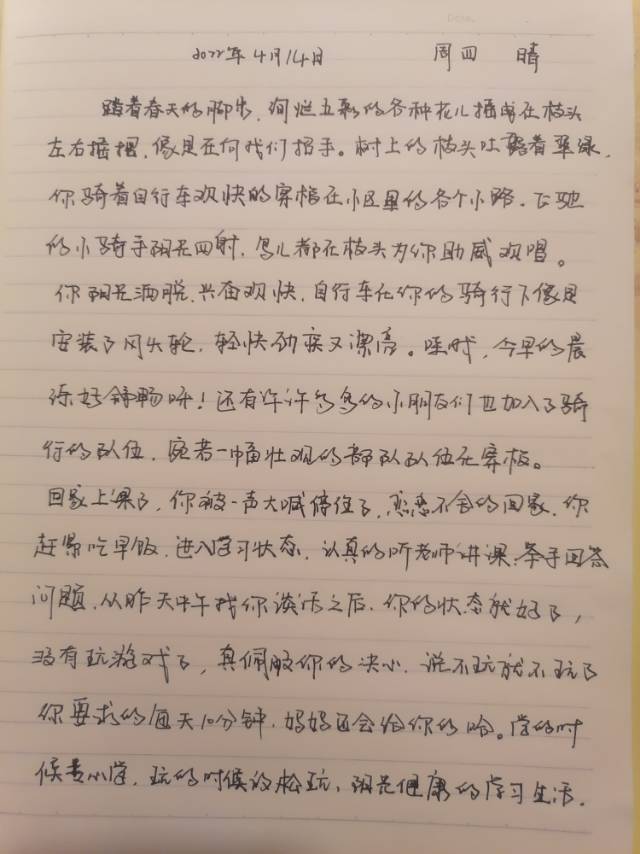 2022年4月14日 周四 晴
踏着春天的脚步,绚烂五彩的各种花儿摇曳在枝头
左右摇摆,像是在向我们招手。树上的枝头吐露着翠绿,
你骑着自行车欢快的穿梭在小区里的各个小路,飞驰
的小骑手阳光四射,鸟儿都在枝头为你助威欢唱。
你阳光洒脱,兴奋欢快,自行车在你的骑行下像是
安装了风火轮,轻快劲爽又漂亮。哇时,今早的晨
练好舒畅呀!还有许许多多的小朋友们也加入了骑
行的队伍,宛若一幅壮观的部队队伍在穿梭。
回家上课了,你被一声大喊停住了,恋恋不舍的回家,你
赶紧吃早饭,进入学习状态,认真的听老师讲课,举手回答
问题,从昨天中午找你谈话之后,你的状态就好了,
没有玩游戏了,真佩服你的决心,说不玩就不玩了
你要求的每天10分钟,妈妈还会给你的哈。学的时
候专心学,玩的时候放松玩,阳光健康的学习生活.